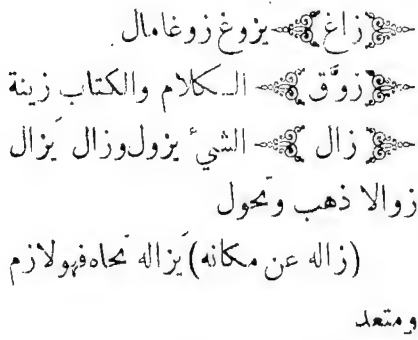 ﴿زاغ﴾ يزوغ زوغا مال
﴿زوَّق﴾ الكلام والكتاب زينة
﴿زال﴾ الشيء يزول وزال يَزال
زوالا ذهب وتحول
(زاله عن مكانه) يَزاله نحاه فهو لازم
ومتعد